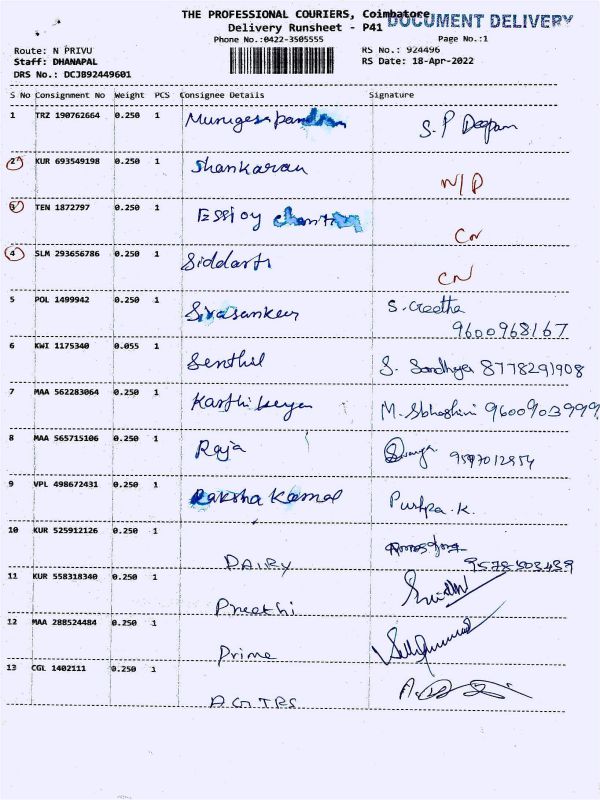 THE PROFESSIONAL COURIERS, Coimbatore
DOCUMENT DELIVERY
Delivery Runsheet - P41
Phone No.:0422-3505555
Page No.:1
Route: N PRIVU
RS No.: 924496
Staff: DHANAPAL
RS Date: 18-Apr-2022
DRS No.: DCJB92449601
S No Consignment No Weight PCS Consignee Details Signature
1 TRZ 190762664 0.250 1 S.P Deepam
2 KUR 693549198 0.250 1 Shankaran N/P
3 TEN 1872797 0.250 1 CN
4 SLM 293656786 0.250 1 Siddarth CN
5 POL 1499942 0.250 1 Sivasankar S. Geetha
9600968167
6 KWI 1175340 0.055 1 Senthil S. Sandhya 8778291908
7 MAA 562283064 0.250 1 Karthikeyan M. 9600903999
8 MAA 565715106 0.250 1 Raja
9 VPL 498672431 0.250 1 Raksha Kamal Pushpa.K.
10 KUR 525912126 0.250 1 DAIRY
11 KUR 558318340 0.250 1 Preethi
12 MAA 288524484 0.250 1 Prime
13 CGL 1402111 0.250 1